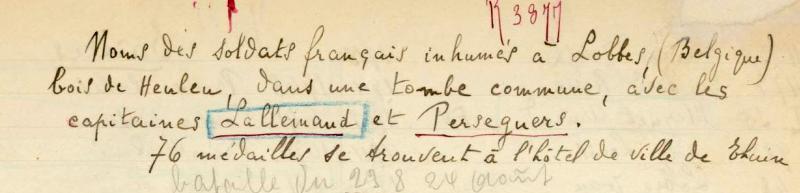 R 3877
Noms des soldats français inhumés à Lobbes, (Belgique)
bois de Heuleu, dans une tombe commune, avec les
capitaines Lallemand et Perseguers.
76 médailles se trouvent à l'hôtel de ville de Thuin
bataille du 23 & 24 août